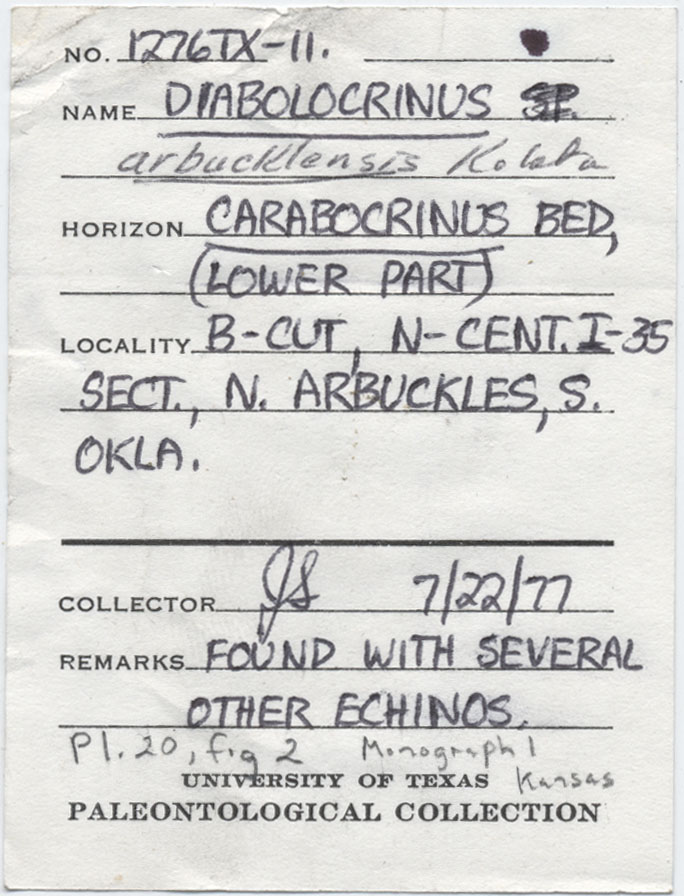 NO. 1276TX-11.
NAME DIABOLOCRINUS
arbucklensis Kolata
HORIZON CARABOCRINUS BED,
(LOWER PART)
LOCALITY B-CUT, N-CENT. I-35
SECT., N. ARBUCKLES, S.
OKLA.
COLLECTOR JS 7/22/77
REMARKS FOUND WITH SEVERAL
OTHER ECHINOS.
Pl. 20, fig 2 Monograph 1
UNIVERSITY OF TEXAS Kansas
PALEONTOLOGICAL COLLECTION